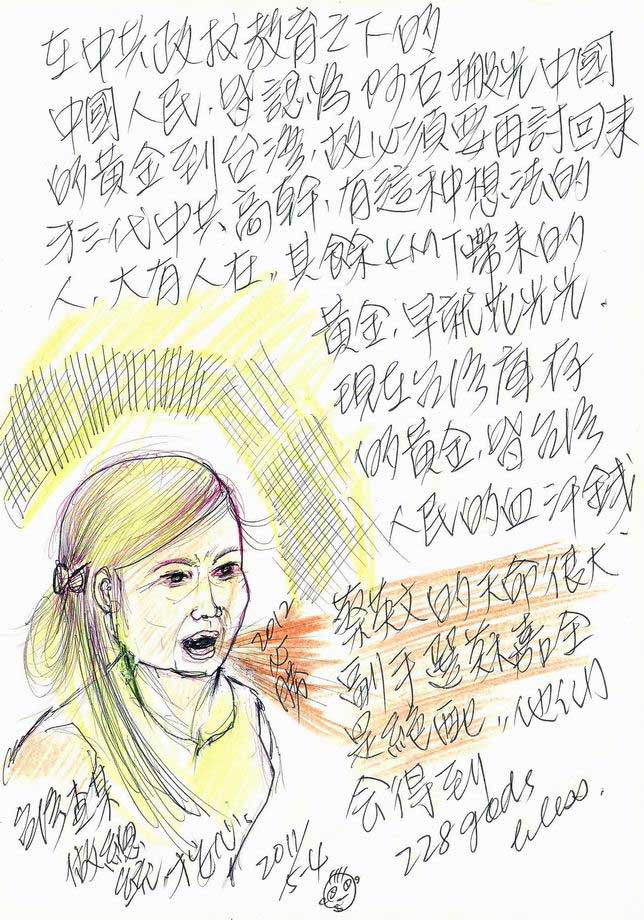 在中共政教教育之下的
中國人民,皆認為阿石搬光中國
的黃金到台灣,故必須要再討回來
才三代中共高幹,有這种想法的
人,大有人在,其餘KMT帶來的
黃金,早就花光光.
現在台湾庫存
的黃金,皆台湾
人民的血汗錢
蔡英文的天命很大
副手選蘇嘉全
是絕配,他们
会得到
228 gods
bless.
2012
台湾查某
做總統,才
2011
5-4